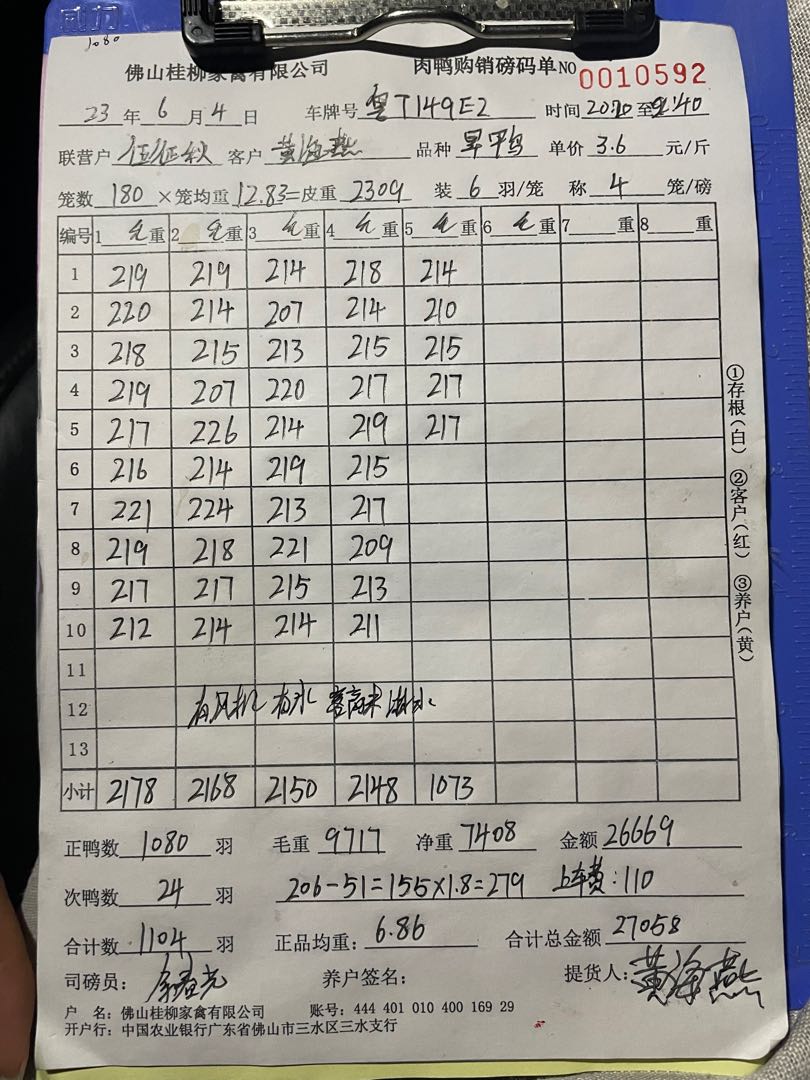 1080
佛山桂柳家禽有限公司 肉鸭购销磅码单 NO 0010592
23年6月4日 车牌号 粤T149E2 时间 20:10至21:40
联营户 伍征秋 客户 黄海燕 品种 旱鸭 单价 3.6 元/斤
笼数 180 ×笼均重 12.83=皮重 2309 装 6 羽/笼 称 4 笼/磅
编号 1 毛重 2 毛重 3 毛重 4 毛重 5 毛重 6 毛重 7 重 8 重
1 219 219 214 218 214
2 220 214 207 214 210
3 218 215 213 215 215
4 219 207 220 217 217
5 217 226 214 219 217
6 216 214 219 215
7 221 224 213 217
8 219 218 221 209
9 217 217 215 213
10 212 214 214 211
11
12 有风机 有水 淋水
13
小计 2178 2168 2150 2148 1073
正鸭数 1080 羽 毛重 9717 净重 7408 金额 26669
次鸭数 24 羽 206-51=155×1.8=279 上车费:110
合计数 1104 羽 正品均重: 6.86 合计总金额 27058
司磅员: 养户签名: 提货人: 黄海燕
户 名: 佛山桂柳家禽有限公司 账号: 444 401 010 400 169 29
开户行: 中国农业银行广东省佛山市三水区三水支行
①存根(白) ②客户(红) ③养户(黄)